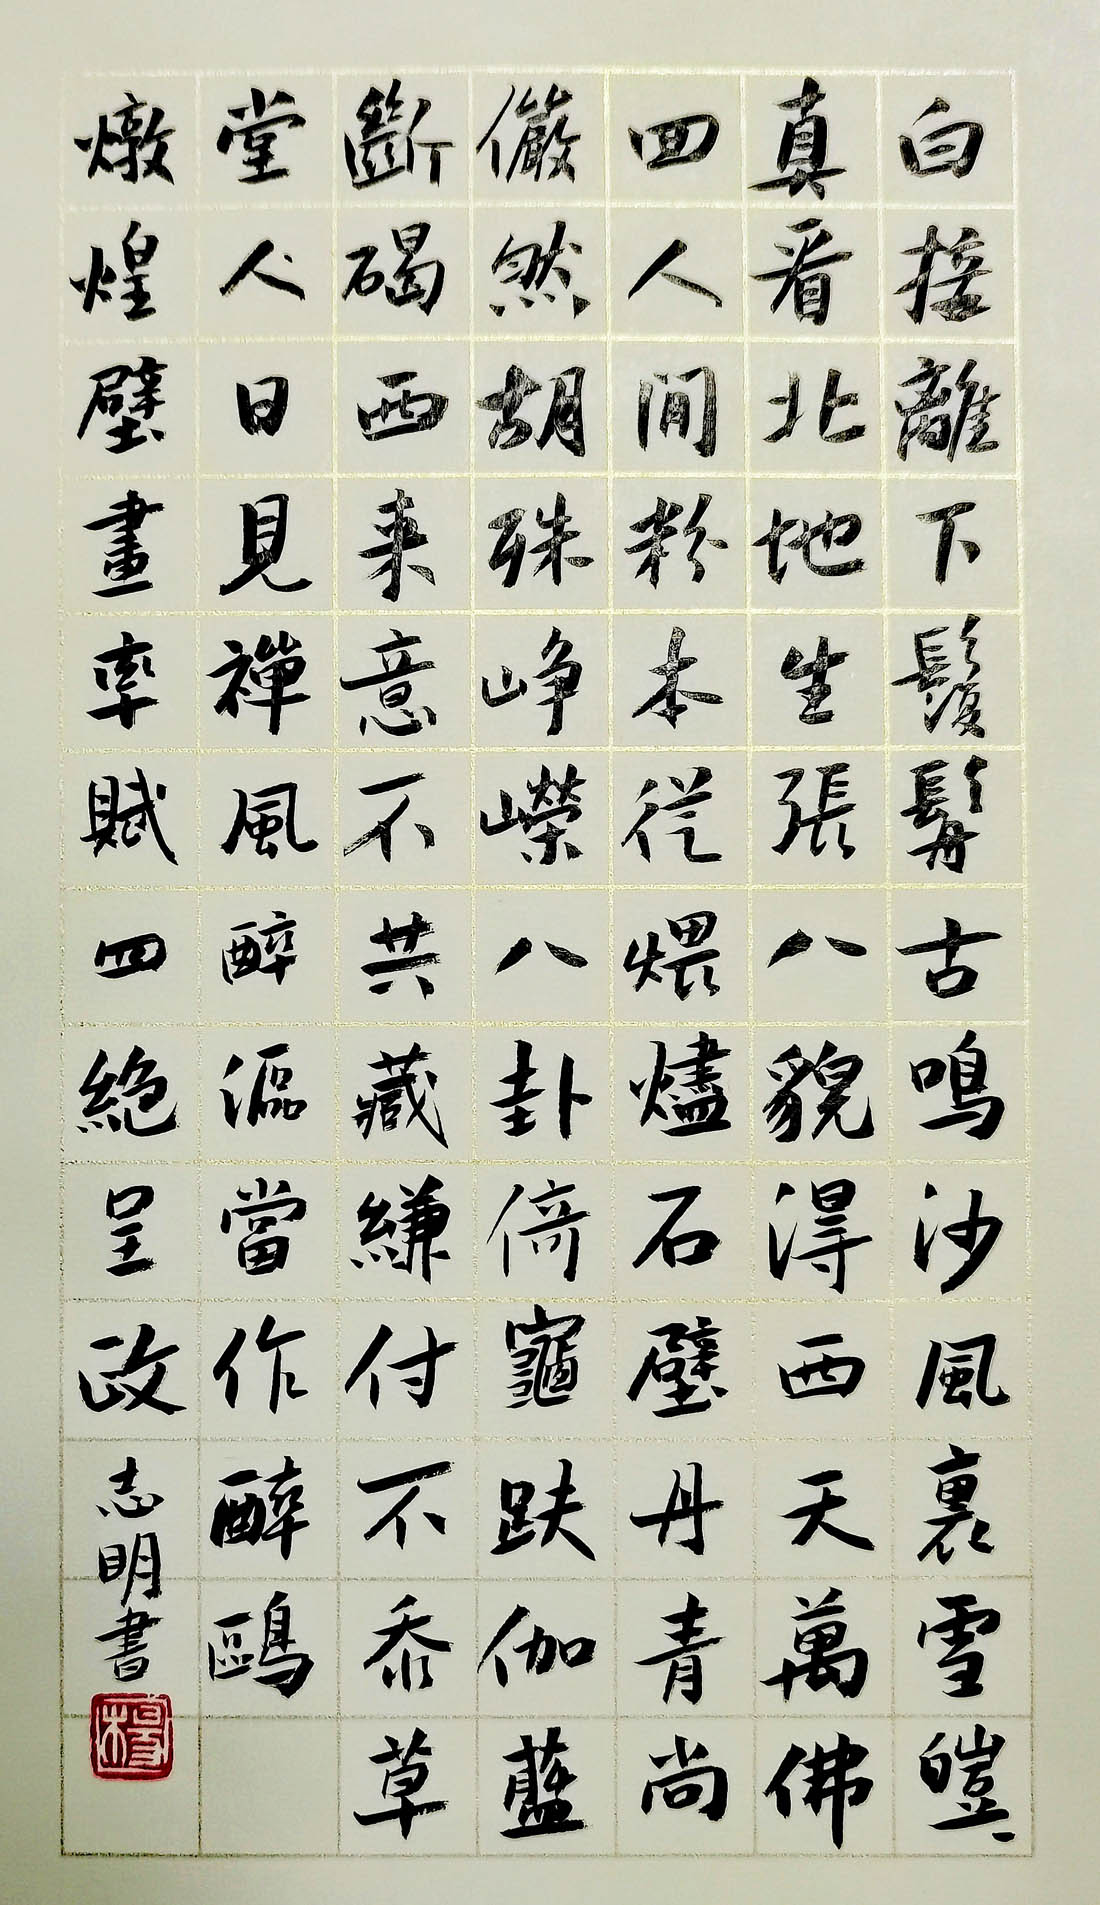 白接離下鬚髯古鳴沙風裏雪皚〻
真看北地生張八貌得西天萬佛
回人間粉本從煨燼石壁丹青尚
儼然胡殊崢嶸八卦倚竈趺伽藍
斷碣西來意不共藏縑付不忝草
堂人日見禪風醉漚當作醉鷗
燉煌壁畫率賦四絕呈政
志明書
穆